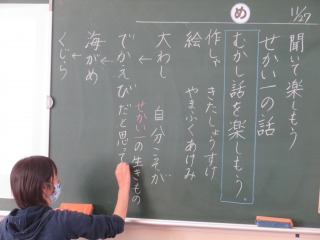 め
11/27
聞いて楽しもう
せかい一の話
むかし話を楽しもう。
作しゃ きたしょうすけ
絵 やまふくあけみ
大わし 自分こそが
↓ せかい一の生きもの
でかえび だと思って
↓
海がめ
↓
くじら